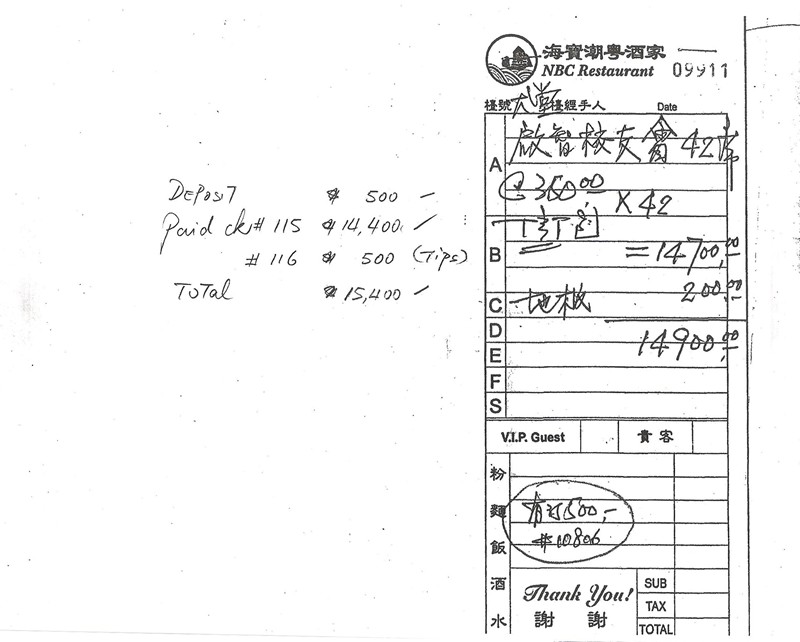 DEPOSIT $ 500 —
Paid ck# 115 $ 14,400. —
# 116 $ 500 (Tips)
TOTAL $ 15,400 —
海寶潮粤酒家
NBC Restaurant 09911
檯號 大堂 檯經手人 Date
A
啟智校友會 42席
@ 350.00 X 42
B
= 14700.00
C
地板 200.00
D
14900.00
E
F
S
V.I.P. Guest 貴客
粉
麵
有訂500.-
#10806
飯
酒
水
Thank You!
謝 謝
SUB
TAX
TOTAL